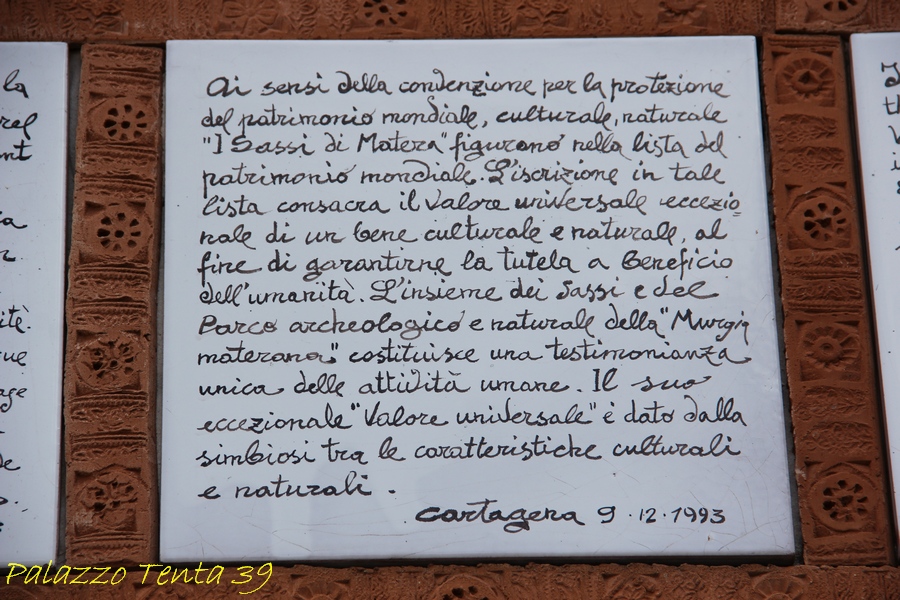 la
Ai sensi della convenzione per la protezione
del patrimonio mondiale, culturale, naturale
"I Sassi di Matera" figurano nella lista del
patrimonio mondiale. L'iscrizione in tale
lista consacra il valore universale eccezio=
nale di un bene culturale e naturale, al
fine di garantirne la tutela a beneficio
dell'umanità. L'insieme dei Sassi e del
Parco archeologico e naturale della "Murgia
materana" costituisce una testimonianza
unica delle attività umane. Il suo
eccezionale "Valore universale" è dato dalla
simbiosi tra le caratteristiche culturali
e naturali.
Cartagena 9.12.1993
Palazzo Tenta 39